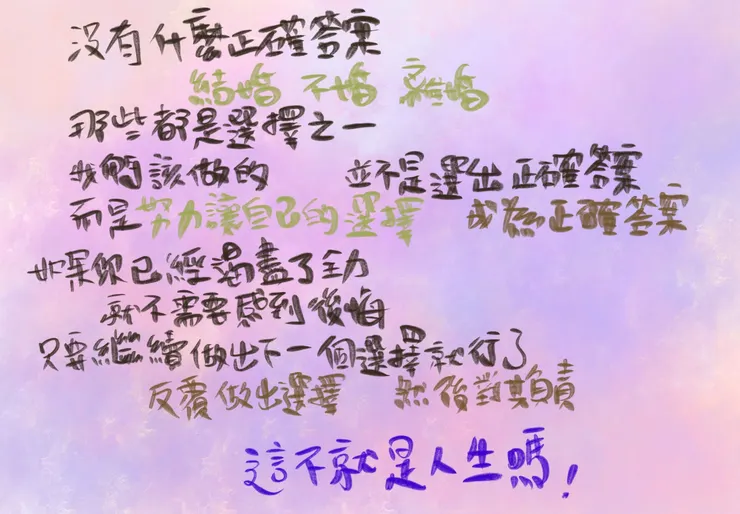 沒有什麼正確答案
結婚 不婚 離婚
那些都是選擇之一
我們該做的 並不是選出正確答案
而是努力讓自己的選擇 成為正確答案
如果你已經竭盡了全力
就不需要感到後悔
只要繼續做出下一個選擇就行了
反覆做出選擇 然後對其負責
這不就是人生嗎！